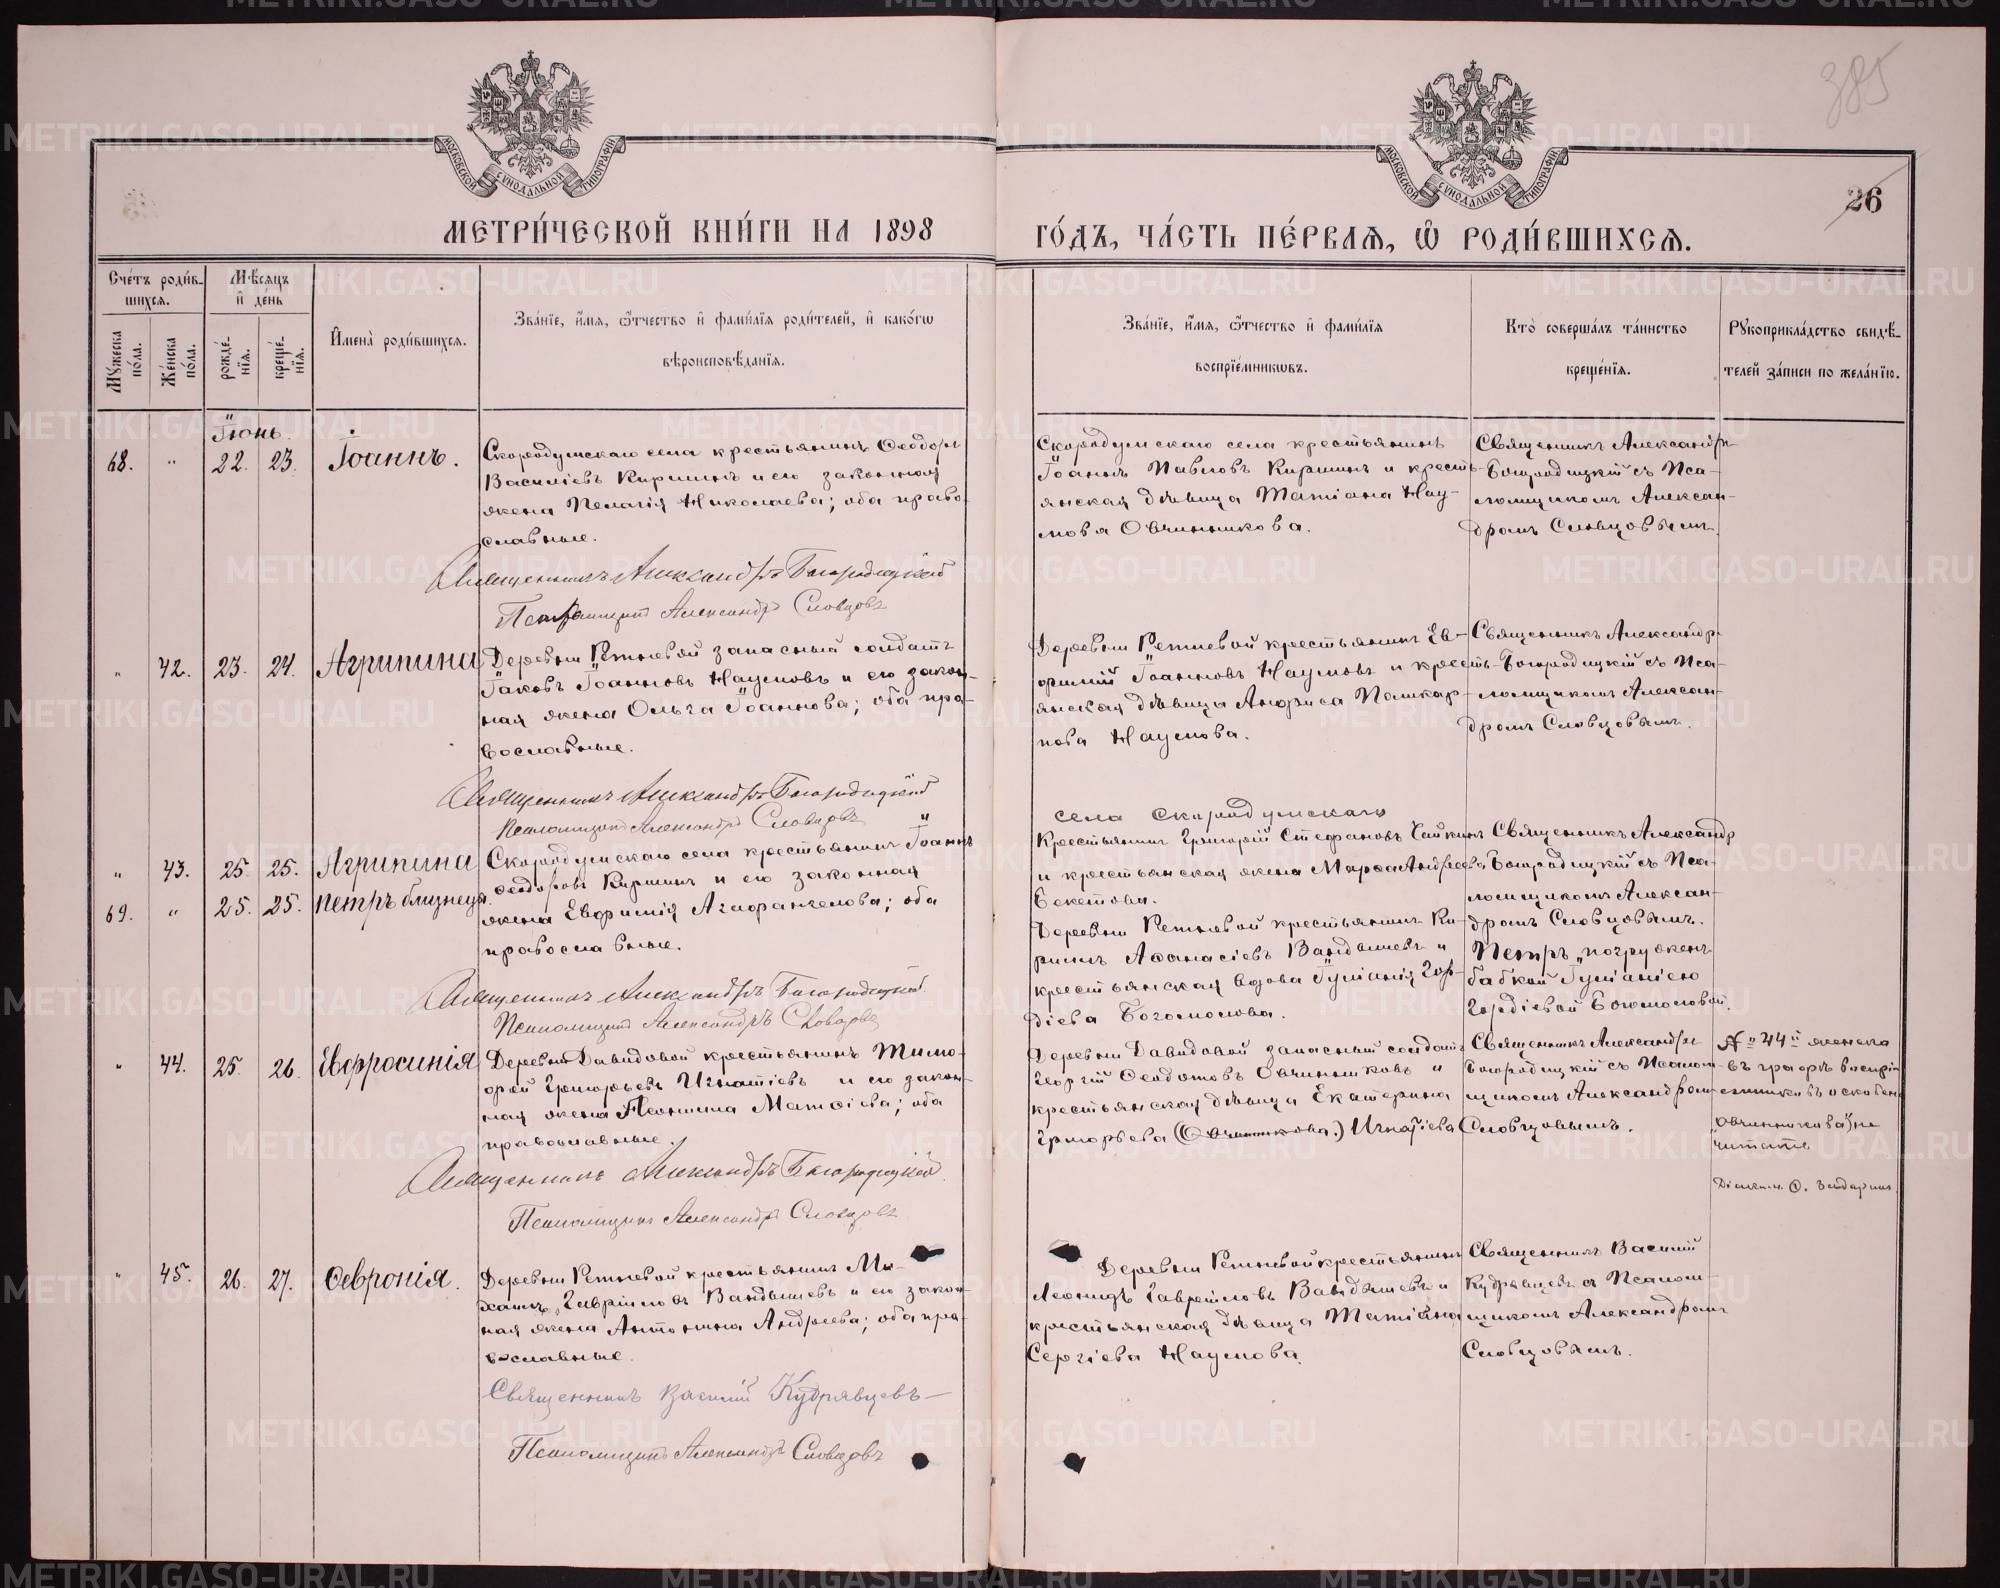 385
26
МОСКОВСКОЙ СѴНОДАЛЬНОЙ ТИПОГРАФІИ
МОСКОВСКОЙ СѴНОДАЛЬНОЙ ТИПОГРАФІИ
МЕТРИ́ЧЕСКОЙ КНИ́ГИ НА 1898
ГО́ДЪ, ЧА́СТЬ ПЕ́РВАЯ, Ѡ РОДИ́ВШИХСЯ.
Сче́тъ роди́в-
шихся.
Мꙋ́жеска по́ла.
Же́нска по́ла.
Мѣ́сяцъ и де́нь
рожде́нїя.
креще́нїя.
И҆мена̀ роди́вшихся.
Зва́нїе, и҆́мя, ѻ҆́тчество и҆ фами́лїя роди́телей, и҆ како́гѡ
вѣроисповѣ́данїя.
Зва́нїе, и҆́мя, ѻ҆́тчество и҆ фами́лїя
воспрїе́мникѡвъ.
Кто̀ соверша́лъ та́инство
креще́нїя.
Рꙋкоприкла́дство свидѣ́-
телей за́писи по жела́нїю.
Іюнь.
68. " 22. 23. Іоаннъ.
Скородумскаго села крестьянинъ Ѳеодоръ
Василіевъ Киршинъ и его законная
жена Пелагія Николаева; оба право-
славные.
Священникъ Александръ Богородицкій
Псаломщикъ Александръ Словцовъ
Скородумскаго села крестьянинъ
Іоаннъ Павловъ Киршинъ и кресть-
янская дѣвица Татіана Нау-
мова Овчинникова.
Священникъ Александръ
Богородицкій съ Пса-
ломщикомъ Алексан-
дромъ Словцовымъ.
" 42. 23. 24. Агрипина
Деревни Ретневой запасный солдатъ
Іаковъ Іоанновъ Наумовъ и его закон-
ная жена Ольга Іоаннова; оба пра-
вославные.
Священникъ Александръ Богородицкій
Псаломщикъ Александръ Словцовъ
Деревни Ретневой крестьянинъ Ев-
фимій Іоанновъ Наумовъ и кресть-
янская дѣвица Анфиса Поликар-
пова Наумова.
Священникъ Александръ
Богородицкій съ Пса-
ломщикомъ Алексан-
дромъ Словцовымъ.
" 43. 25. 25. Агрипина
69. " 25. 25. Петръ близнецы.
Скородумскаго села крестьянинъ Іоаннъ
Ѳеодоровъ Киршинъ и его законная
жена Евфимія Агафангелова; оба
православные.
Священникъ Александръ Богородицкій
Псаломщикъ Александръ Словцовъ
села Скородумскаго
Крестьянинъ Григорій Стефановъ Чайкинъ
и крестьянская жена Марѳа Андреева
Бекетова.
Деревни Ретневой крестьянинъ Ки-
риллъ Аѳанасіевъ Вандышевъ и
крестьянская вдова Іуліанія Гор-
діева Богомолова.
Священникъ Александръ
Богородицкій съ Пса-
ломщикомъ Алексан-
дромъ Словцовымъ.
Петръ „погруженъ
бабкой Іуліаніею
Гордіевой Богомоловой.
" 44. 25. 26. Евфросинія
Деревни Давидовой крестьянинъ Тимо-
фей Григорьевъ Игнатіевъ и его закон-
ная жена Леонтина Матѳіева; оба
православные.
Священникъ Александръ Богородицкій.
Псаломщикъ Александръ Словцовъ
Деревни Давидовой запасный солдатъ
Георгій Ѳеодотовъ Овчинниковъ и
крестьянская дѣвица Екатерина
Григорьева (Овчинникова.) Игнатіева
Священникъ Александръ
Богородицкій съ Псалом-
щикомъ Александромъ
Словцовымъ.
№ 44й женска
въ графѣ воспріе-
емниковъ оскоблено
„Овчинникова" не
читать
" 45. 26. 27. Ѳевронія.
Деревни Ретневой крестьянинъ Ми-
хаилъ Гавріиловъ Вандышевъ и его закон-
ная жена Антонина Андреева; оба пра-
вославные.
Священникъ Василій Кудрявцевъ
Псаломщикъ Александръ Словцовъ
Деревни Ретневой крестьянинъ
Леонидъ Гавріиловъ Вандышевъ и
крестьянская дѣвица Татіана
Сергіева Наумова.
Священникъ Василій
Кудрявцевъ съ Псалом-
щикомъ Александромъ
Словцовымъ.
METRIKI.GASO-URAL.RU